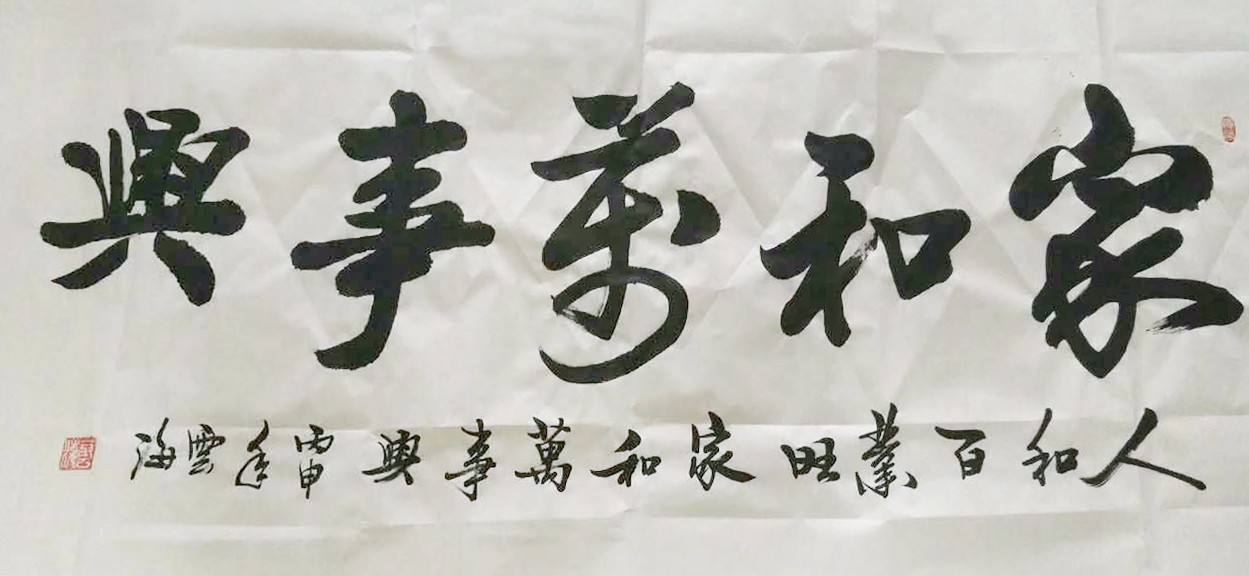 家和萬事興
人和百業旺家和萬事興丙申年雲海